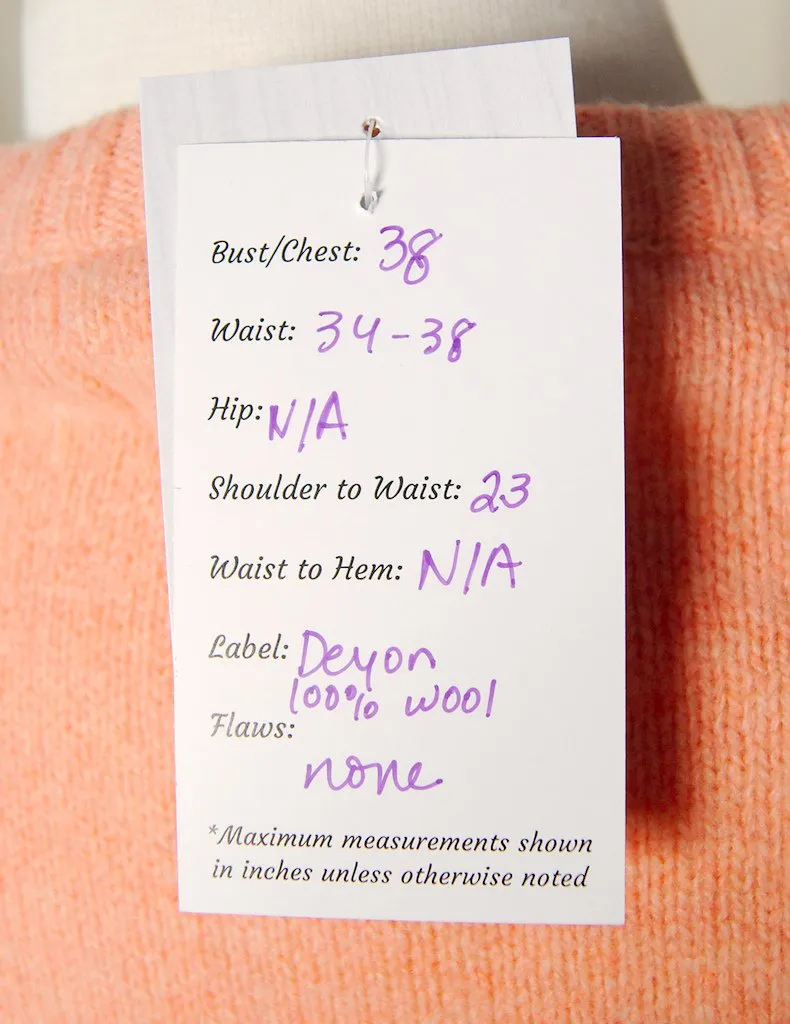 Bust/Chest: 38
Waist: 34-38
Hip: N/A
Shoulder to Waist: 23
Waist to Hem: N/A
Label: Deyon
100% wool
Flaws:
none
*Maximum measurements shown
in inches unless otherwise noted